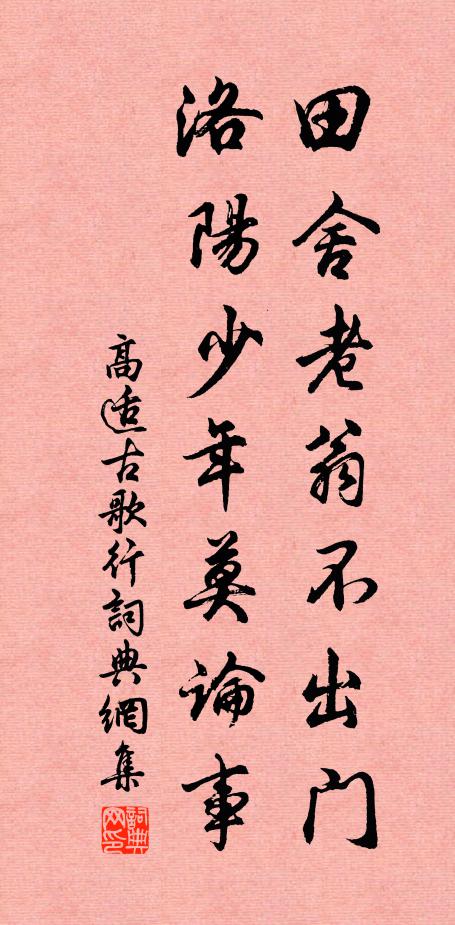 田舍老翁不出門
洛陽少年莫論事
高适古歌行詞典網集
詞典网印